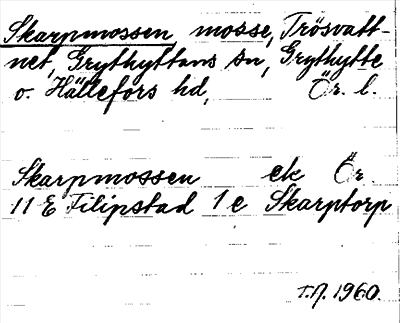 Skarpmossen mosse, Trösvatt-
net, Grythyttans sn, Grythytte
o. Hällefors hd, Ör. l.
Skarpmossen ek Ör.
11 E Filipstad 1 e Skarptorp
T.N. 1960.